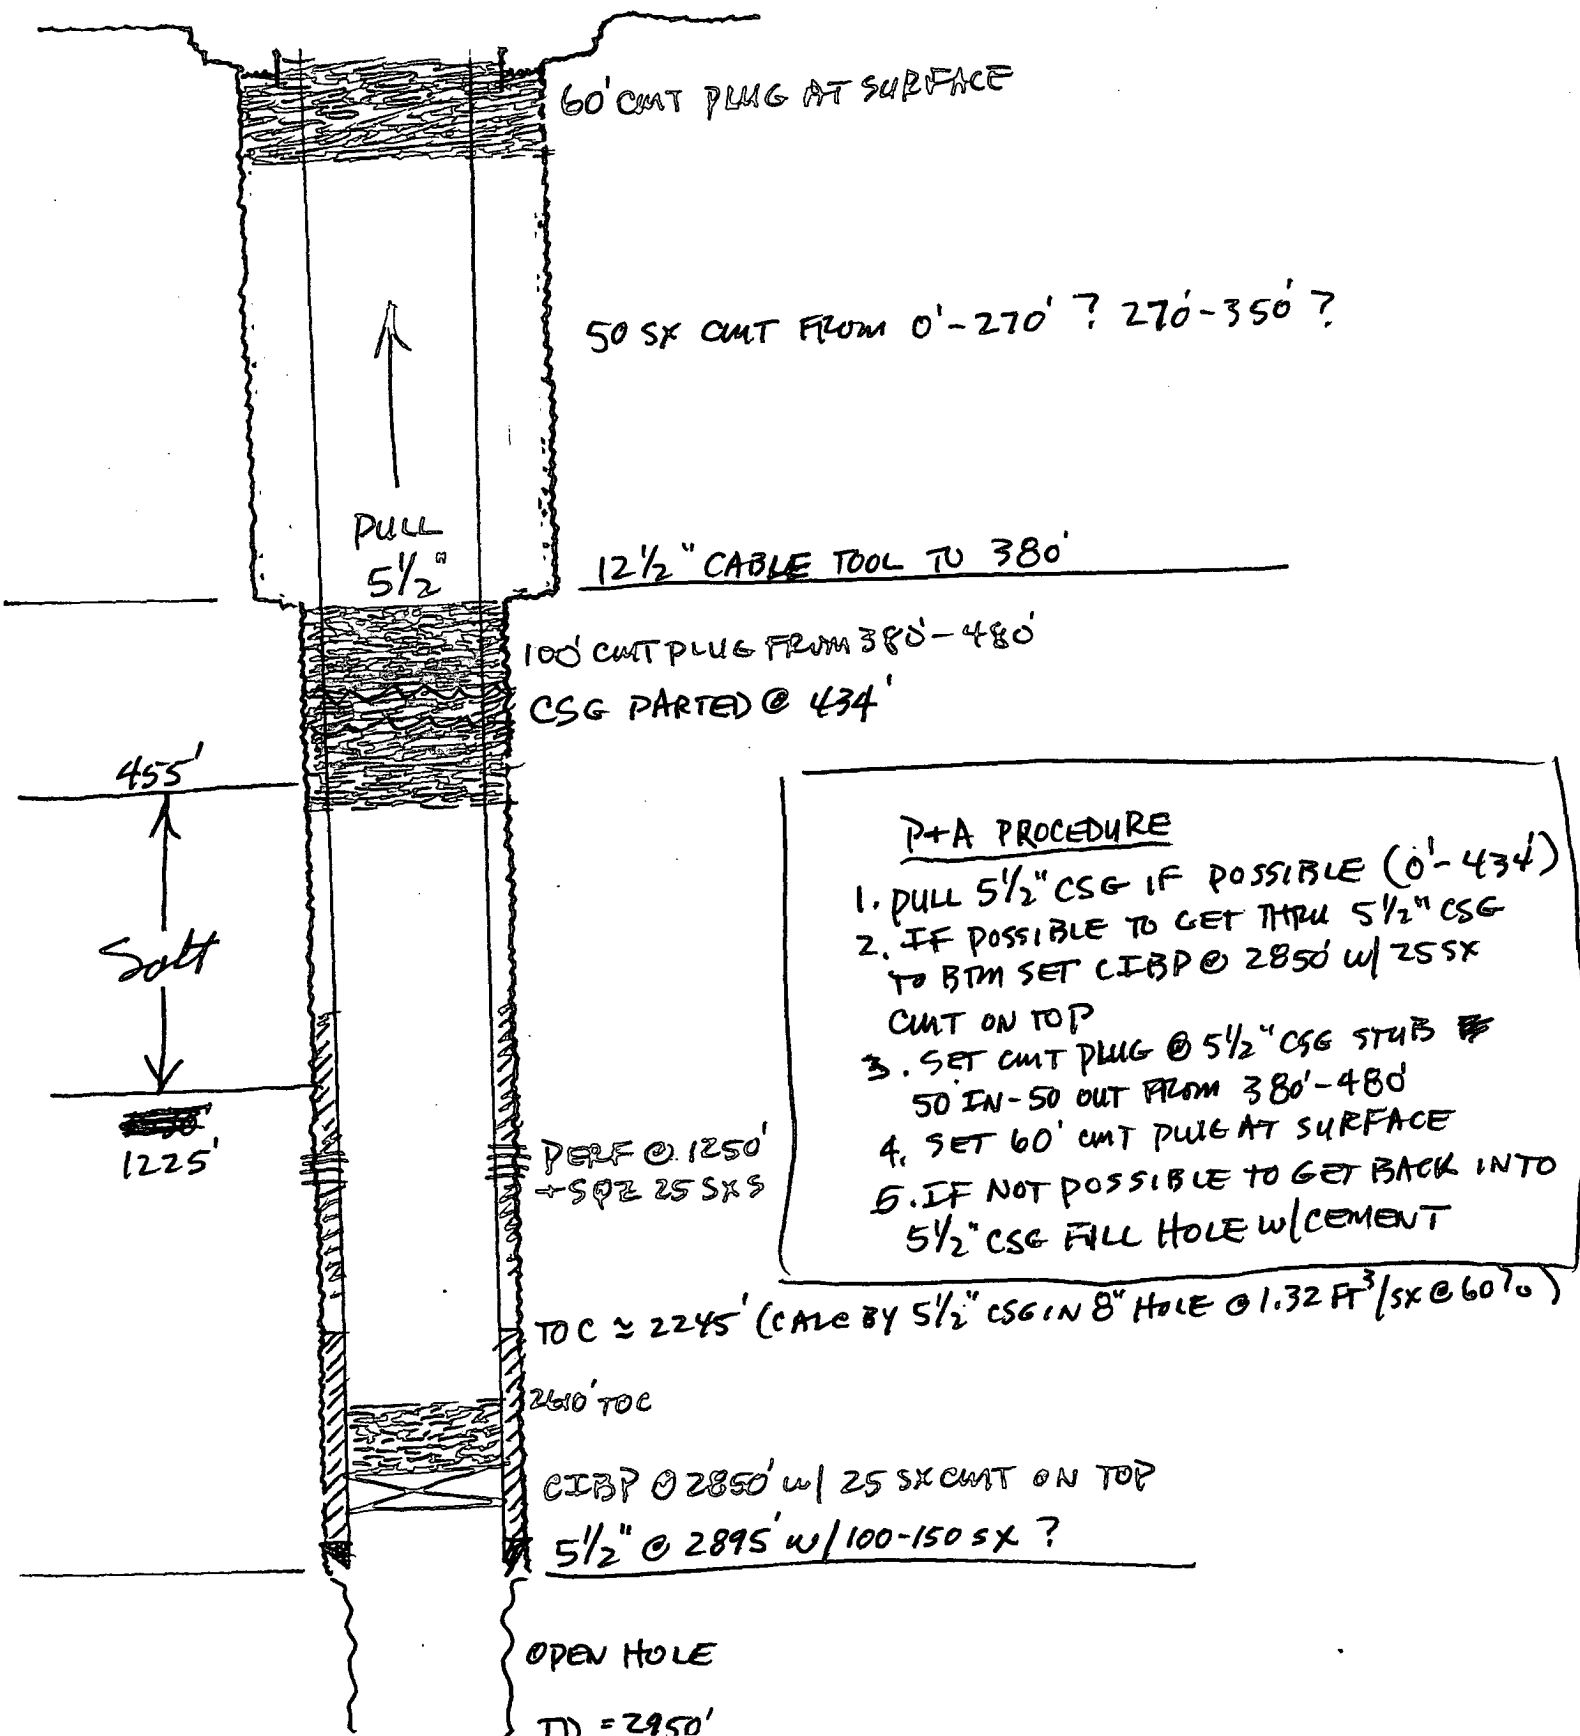 60' CMT PLUG AT SURFACE
50 SX CMT FROM 0'-270' ? 270'-350' ?
PULL
5 1/2"
12 1/2" CABLE TOOL TO 380'
100' CMT PLUG FROM 380'-480'
CSG PARTED @ 434'
455'
Salt
1225'
P+A PROCEDURE
1. PULL 5 1/2" CSG IF POSSIBLE (0'-434')
2. IF POSSIBLE TO GET THRU 5 1/2" CSG
TO BTM SET CIBP @ 2850' W/ 25 SX
CMT ON TOP
3. SET CMT PLUG @ 5 1/2" CSG STUB
50 IN-50 OUT FROM 380'-480'
4. SET 60' CMT PLUG AT SURFACE
5. IF NOT POSSIBLE TO GET BACK INTO
5 1/2" CSG FILL HOLE W/CEMENT
PERF @ 1250'
+ SQZ 25 SXS
TOC ≈ 2245' (CALC BY 5 1/2" CSG IN 8" HOLE @ 1.32 FT³/SX @ 60%)
2610' TOC
CIBP @ 2850' W/ 25 SX CMT ON TOP
5 1/2" @ 2895' W/100-150 SX ?
OPEN HOLE
TD = 2950'